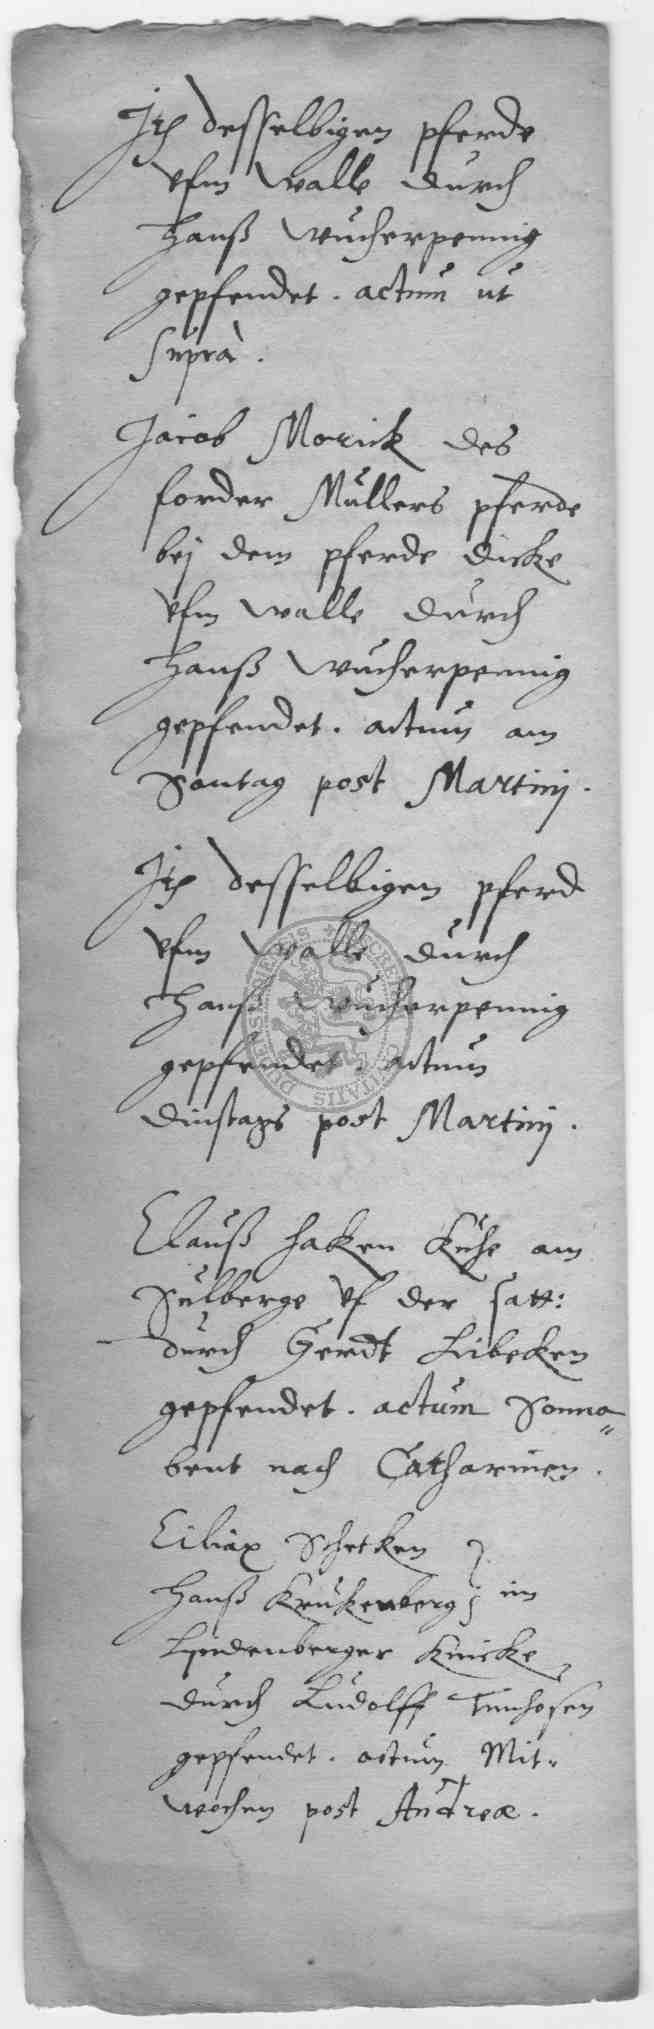 Itē desselbigen pferde
vfm walle durch
Hanß Wucherpennig
gepfendet. actum ut
supra.
Jacob Morick des
forder Mullers pferde
bej dem pferde dicke
vfm walle durch
Hanß Wucherpennig
gepfendet. actum am
Sontag post Martinj.
Itē desselbigen pferd
vfm walle durch
Hanß Wucherpennig
gepfendet. actum
Dinstags post Martinj.
Clauß Haken Kuhe am
Sulberge vf der satt:
durch Gerdt Libeken
gepfendet. actum Sonna
bent nach Catharinen.
Ciliax Schetken
Hanß Krukenberg im
Lyndenberger Knicke
durch Ludolff Timhosen
gepfendet. actum Mit-
wochen post Andreæ.